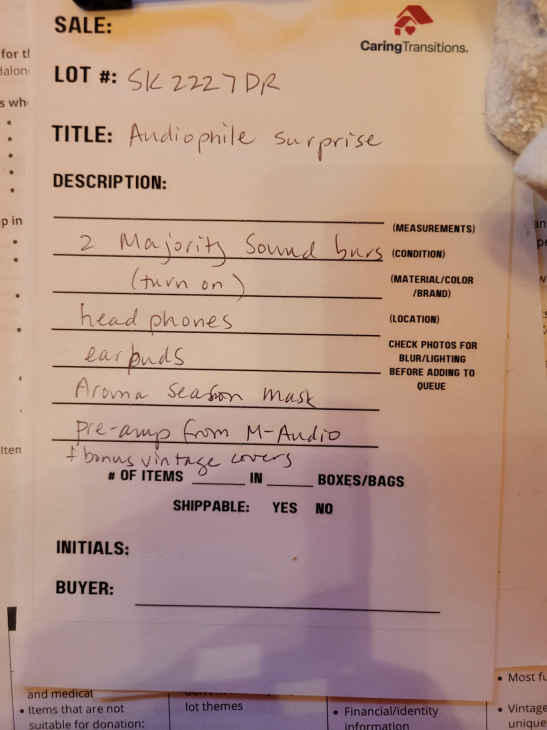 SALE:
CaringTransitions.
LOT #: SK2227DR
TITLE: Audiophile surprise
DESCRIPTION:
(MEASUREMENTS)
2 Majority Sound bars (CONDITION)
(turn on) (MATERIAL/COLOR
/BRAND)
head phones (LOCATION)
earbuds CHECK PHOTOS FOR
BLUR/LIGHTING
BEFORE ADDING TO
QUEUE
Aroma Season mask
pre-amp from M-Audio
+ bonus vintage covers
# OF ITEMS IN BOXES/BAGS
SHIPPABLE: YES NO
INITIALS:
BUYER:
and medical
• Items that are not
suitable for donation:
lot themes
• Financial/identity
information
• Most
• Vintage
unique